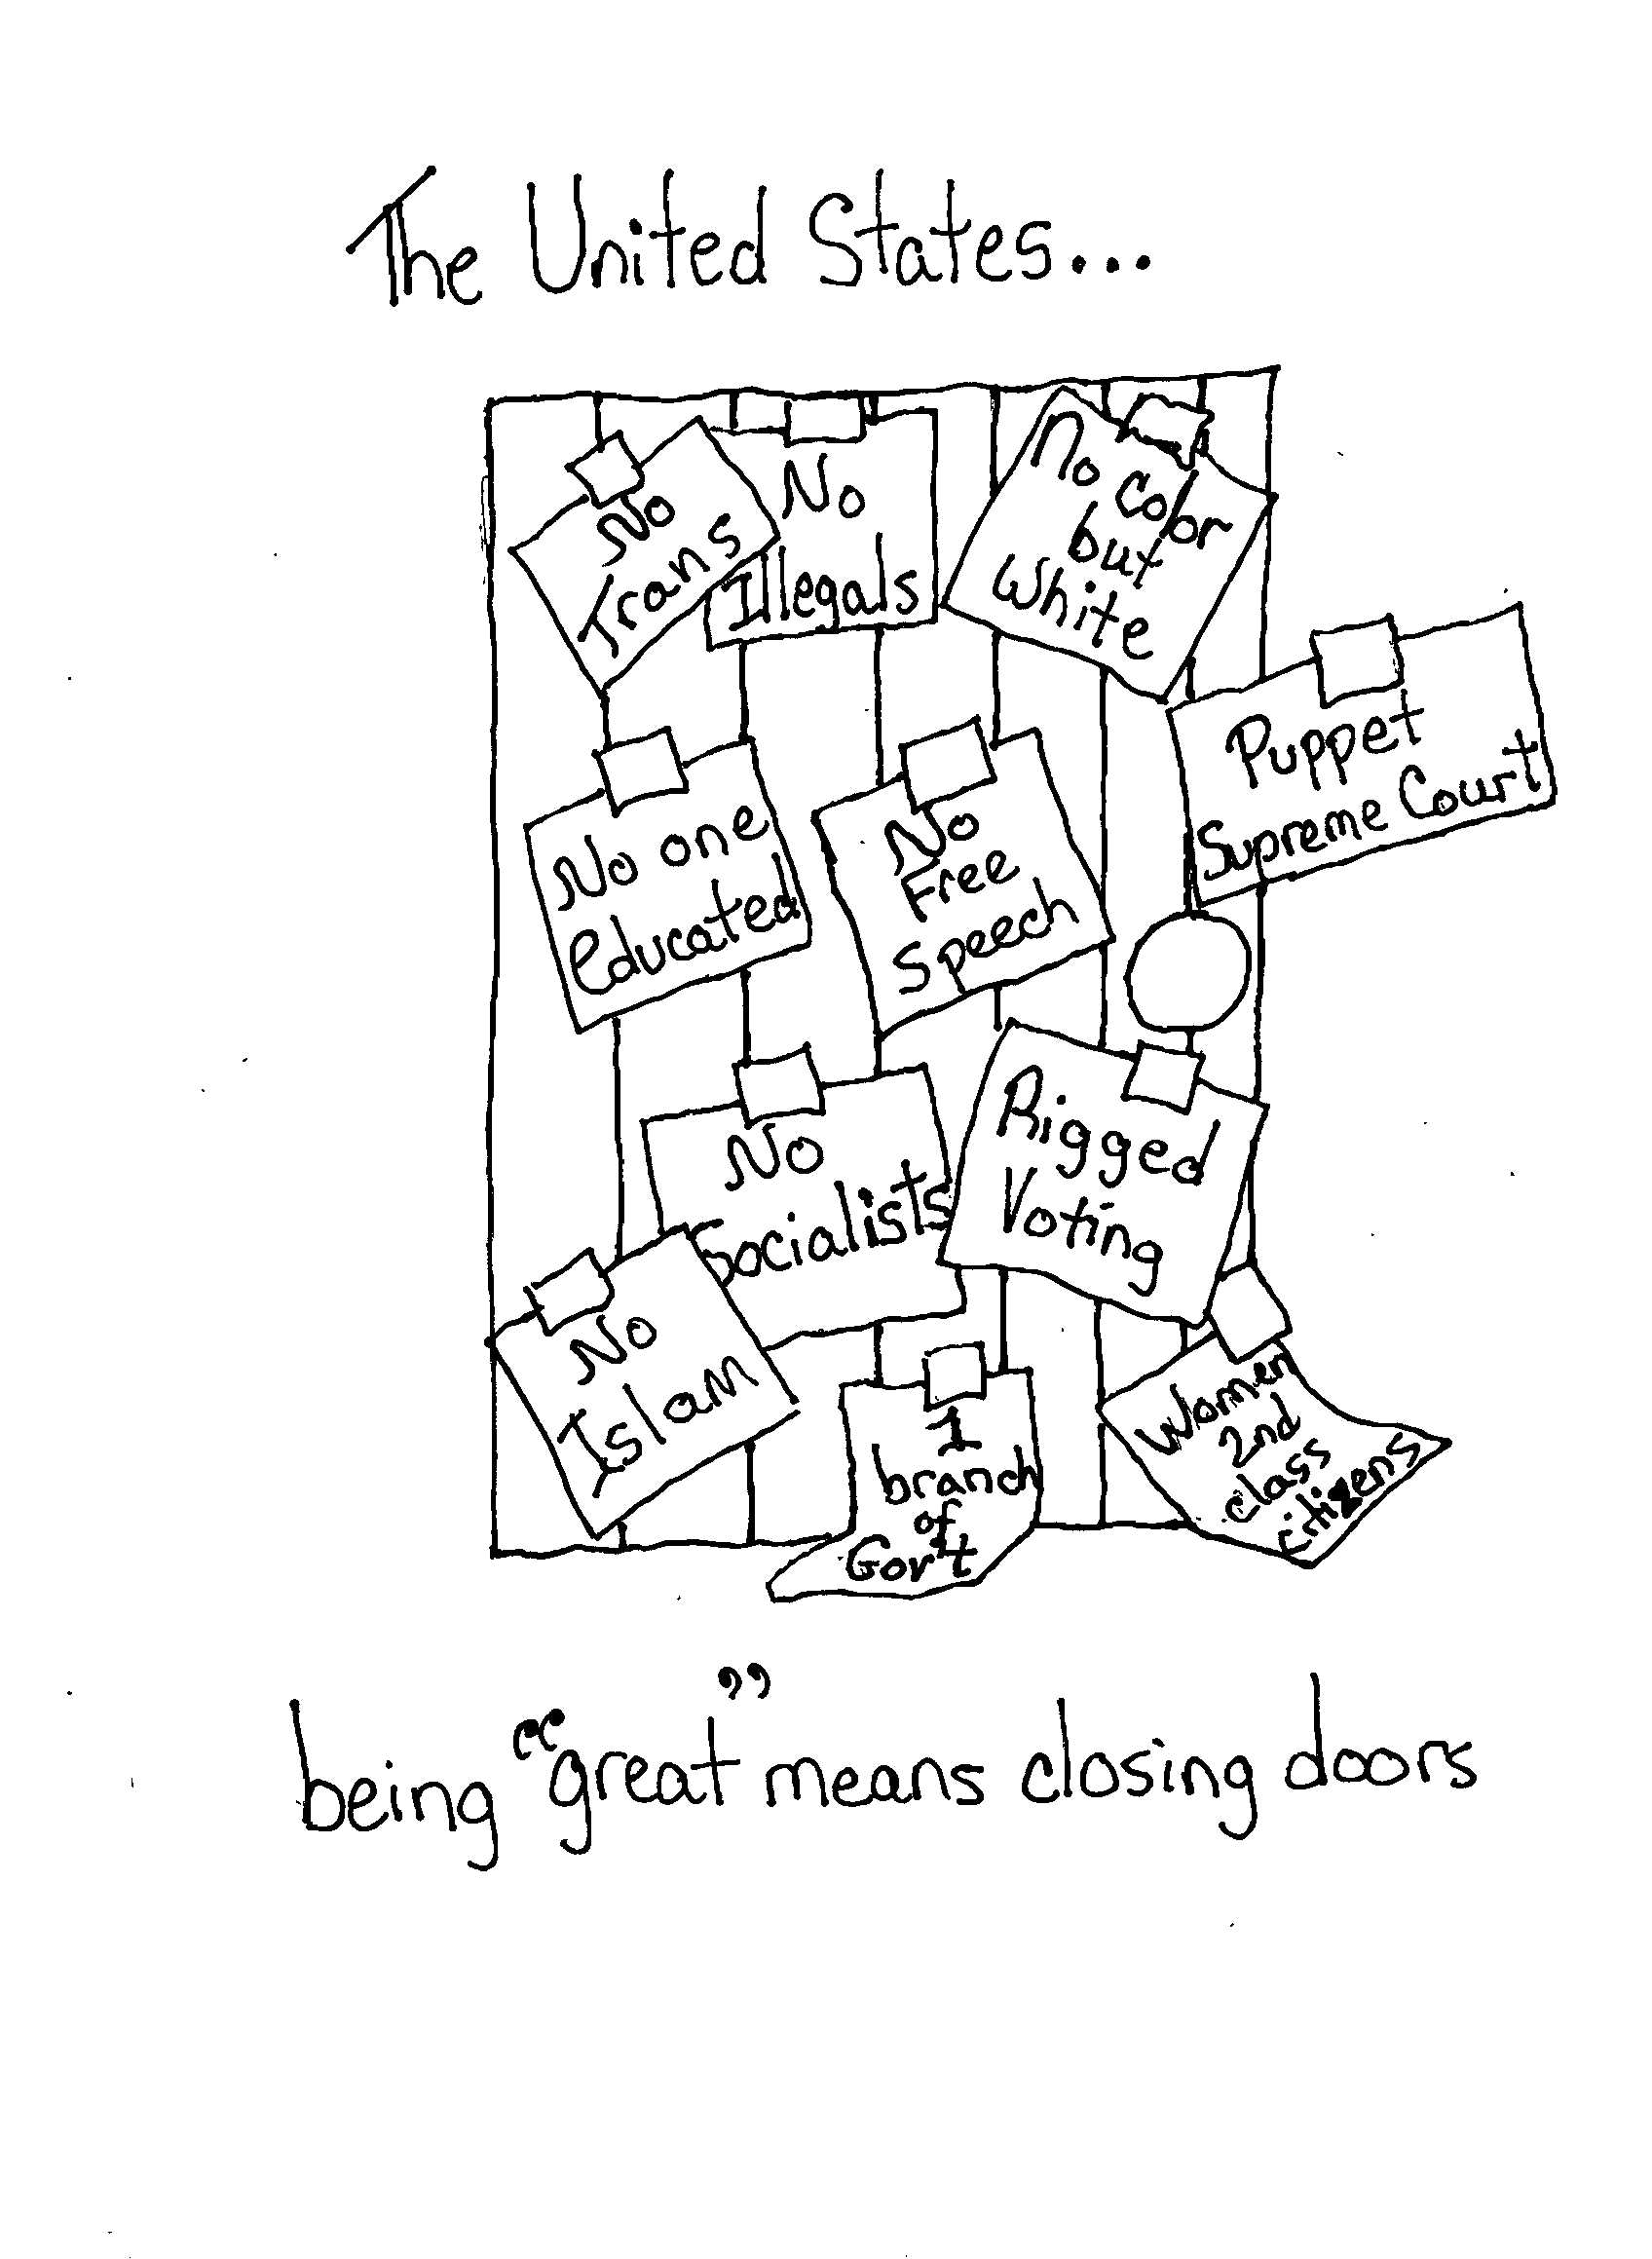 The United States...
No
Trans
No
Illegals
No color
but
White
Puppet
Supreme Court
No one
educated
No
Free
Speech
No
Socialists
Rigged
Voting
No
Islam
1
branch
of
Gov't
Women
2nd
class
citizens
being “great” means closing doors